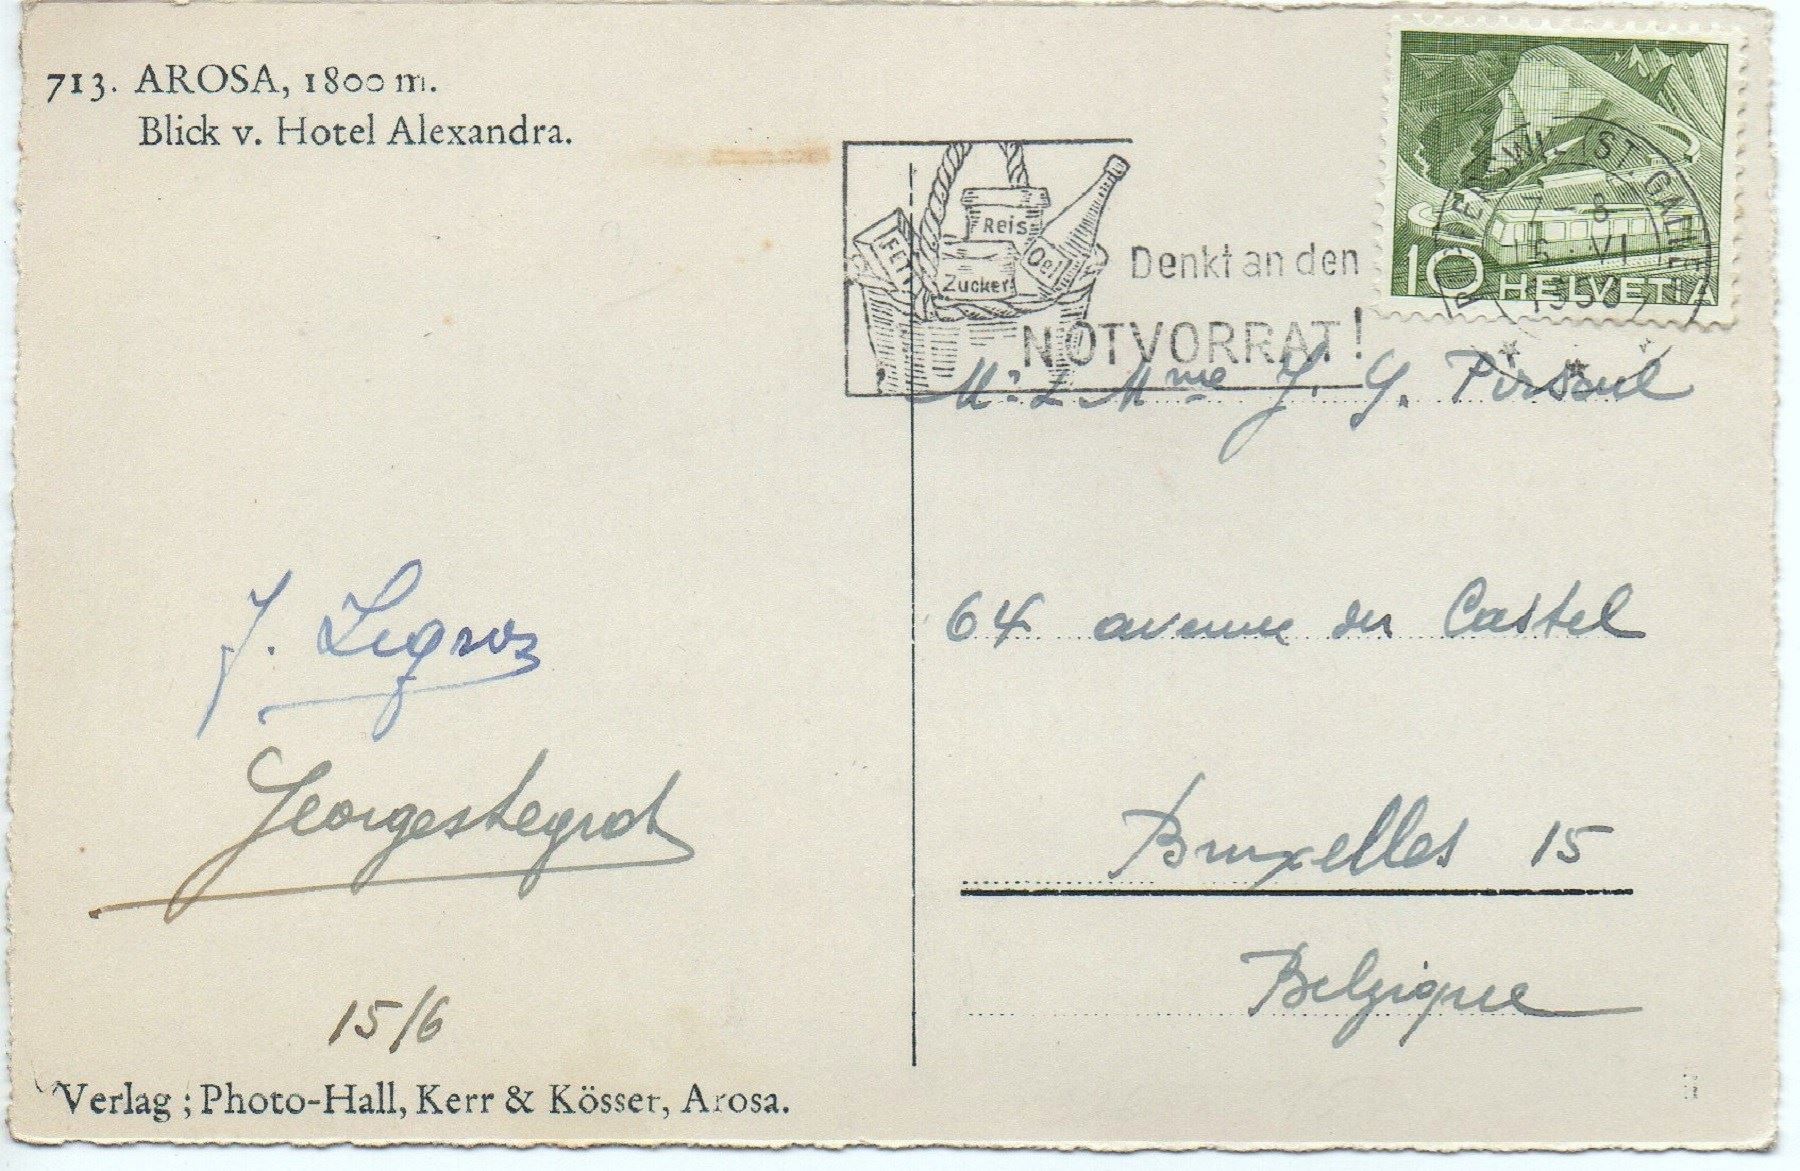 713. AROSA, 1800 m.
Blick v. Hotel Alexandra.
FETT
Reis
Zucker
Oel
Denkt an den
NOTVORRAT!
ST. GALLEN
7 - 8
16. VI
1950
10 HELVETIA
Mr & Mme J. G. Pirsoul
64 avenue du Castel
Bruxelles 15
Belgique
J. Legros
Georges Legros
15/6
Verlag ; Photo-Hall, Kerr & Kösser, Arosa.